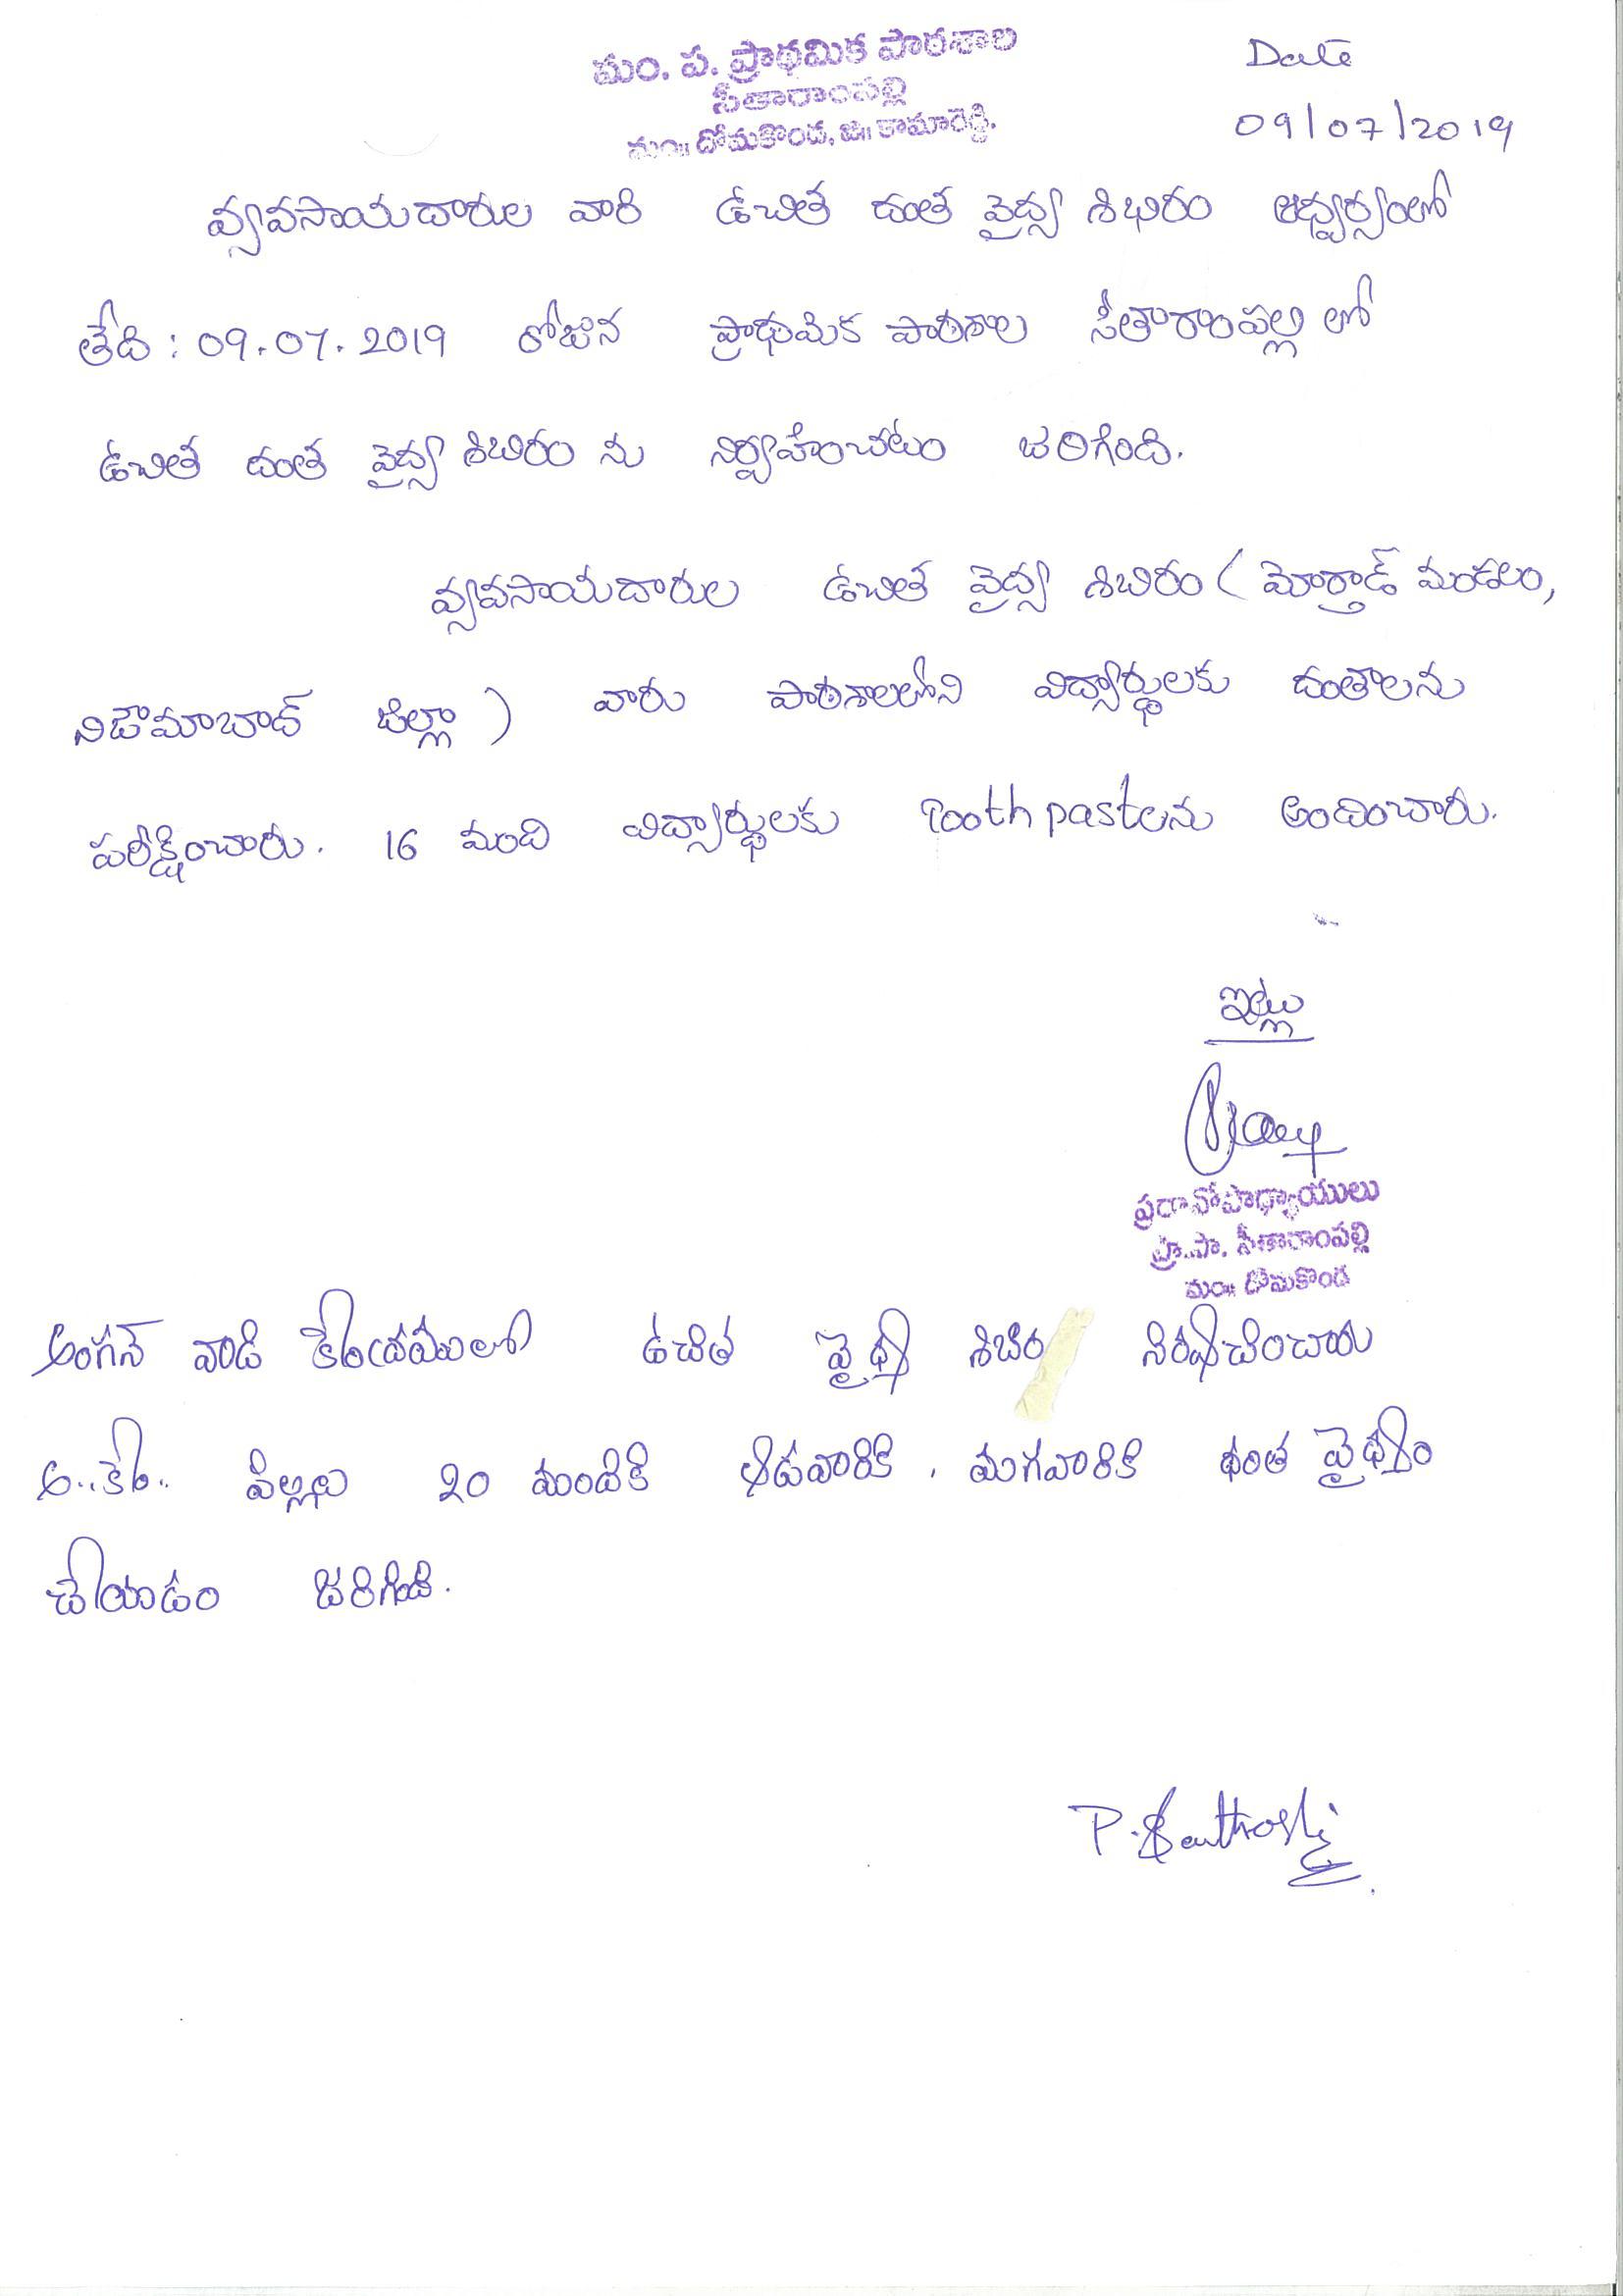 మం. ప. ప్రాథమిక పాఠశాల
సీతారాంపల్లి
మం॥ దోమకొండ, జి॥ కామారెడ్డి.
Date
09/07/2019
వ్యవసాయదారుల వారి ఉచిత దంత వైద్య శిభిరం ఆధ్వర్యంలో
తేది : 09.07.2019 రోజున ప్రాథమిక పాఠశాల సీతారాంపల్లి లో
ఉచిత దంత వైద్య శిబిరం ను నిర్వహించటం జరిగింది.
వ్యవసాయదారుల ఉచిత వైద్య శిబిరం ( మోర్తాడ్ మండలం,
నిజామాబాద్ జిల్లా ) వారు పాఠశాలలోని విద్యార్థులకు దంతాలను
పరీక్షించారు. 16 మంది విద్యార్థులకు Tooth pasteలను అందించారు.
ఇట్లు
ప్రధానోపాధ్యాయులు
ప్రా.పా. సీతారాంపల్లి
మం॥ దోమకొండ
అంగన్ వాడి కేంద్రములో ఉచిత వైధ్య శిబిర
అ..కేం.. పిల్లలు 20 మందికి ఆడవారికి, మగవారికి థంత వైధ్యం
చేయడం జరిగింది.